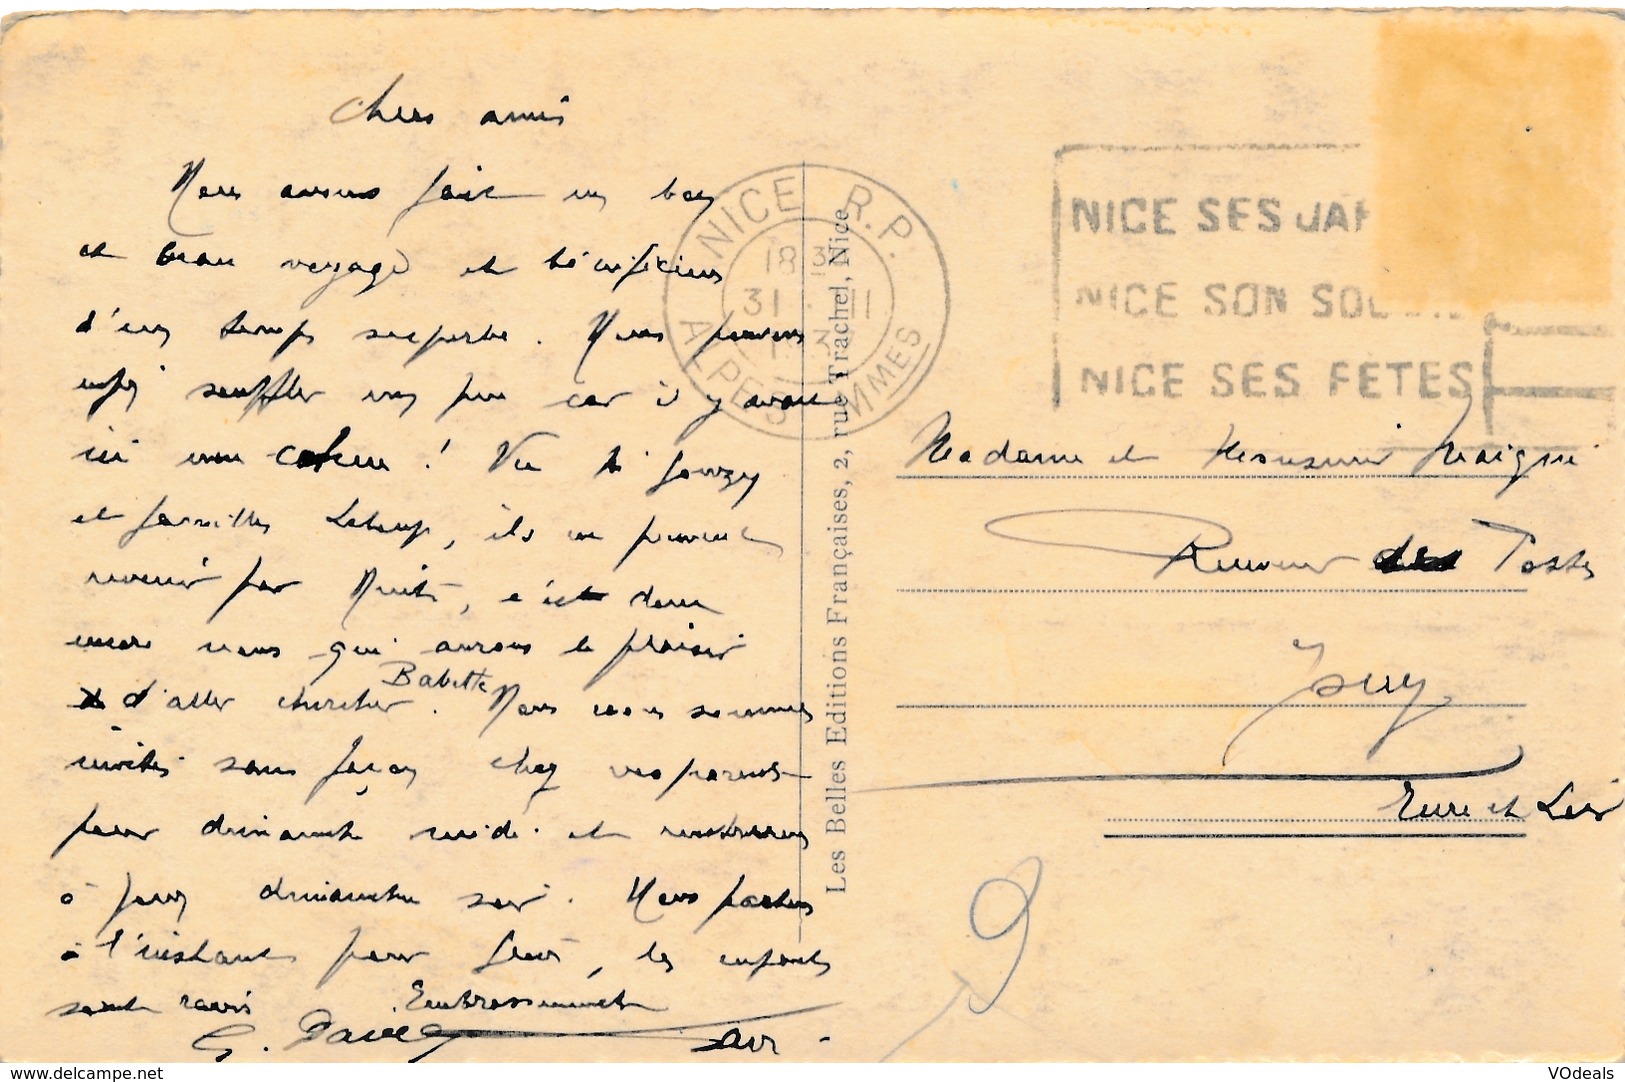 Chers amis
Nous avons fait un bon
et beau voyage et bénéficions
d'un temps superbe. Nous pouvons
enfin souffler un peu car il y avait
ici une cohue ! Vu
et familles Leloup, ils ne peuvent
revenir par Nuits, c'est donc
encore nous qui aurons le plaisir
d'aller chercher Babette. Nous nous sommes
invités sans façon chez vos parents
pour dimanche midi et rentrerons
à Jouy dimanche soir. Nous partons
à l'instant pour , les enfants
sont ravis Embrassements
G.
NICE R.P.
18 3
31 · 11
ALPES MMES
NICE SES JAR
NICE SON SOL
NICE SES FETES
Les Belles Editions Françaises, 2, rue Trachel, Nice
Madame et Monsieur Maigni
Receveur des Postes
Jouy
Eure et Loir
9
www.delcampe.net
VOdeals